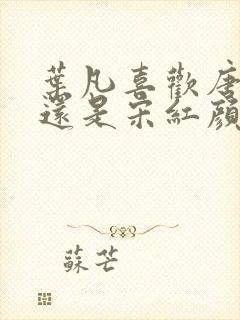 葉凡喜歡唐
還是宋紅顏
蘇芒